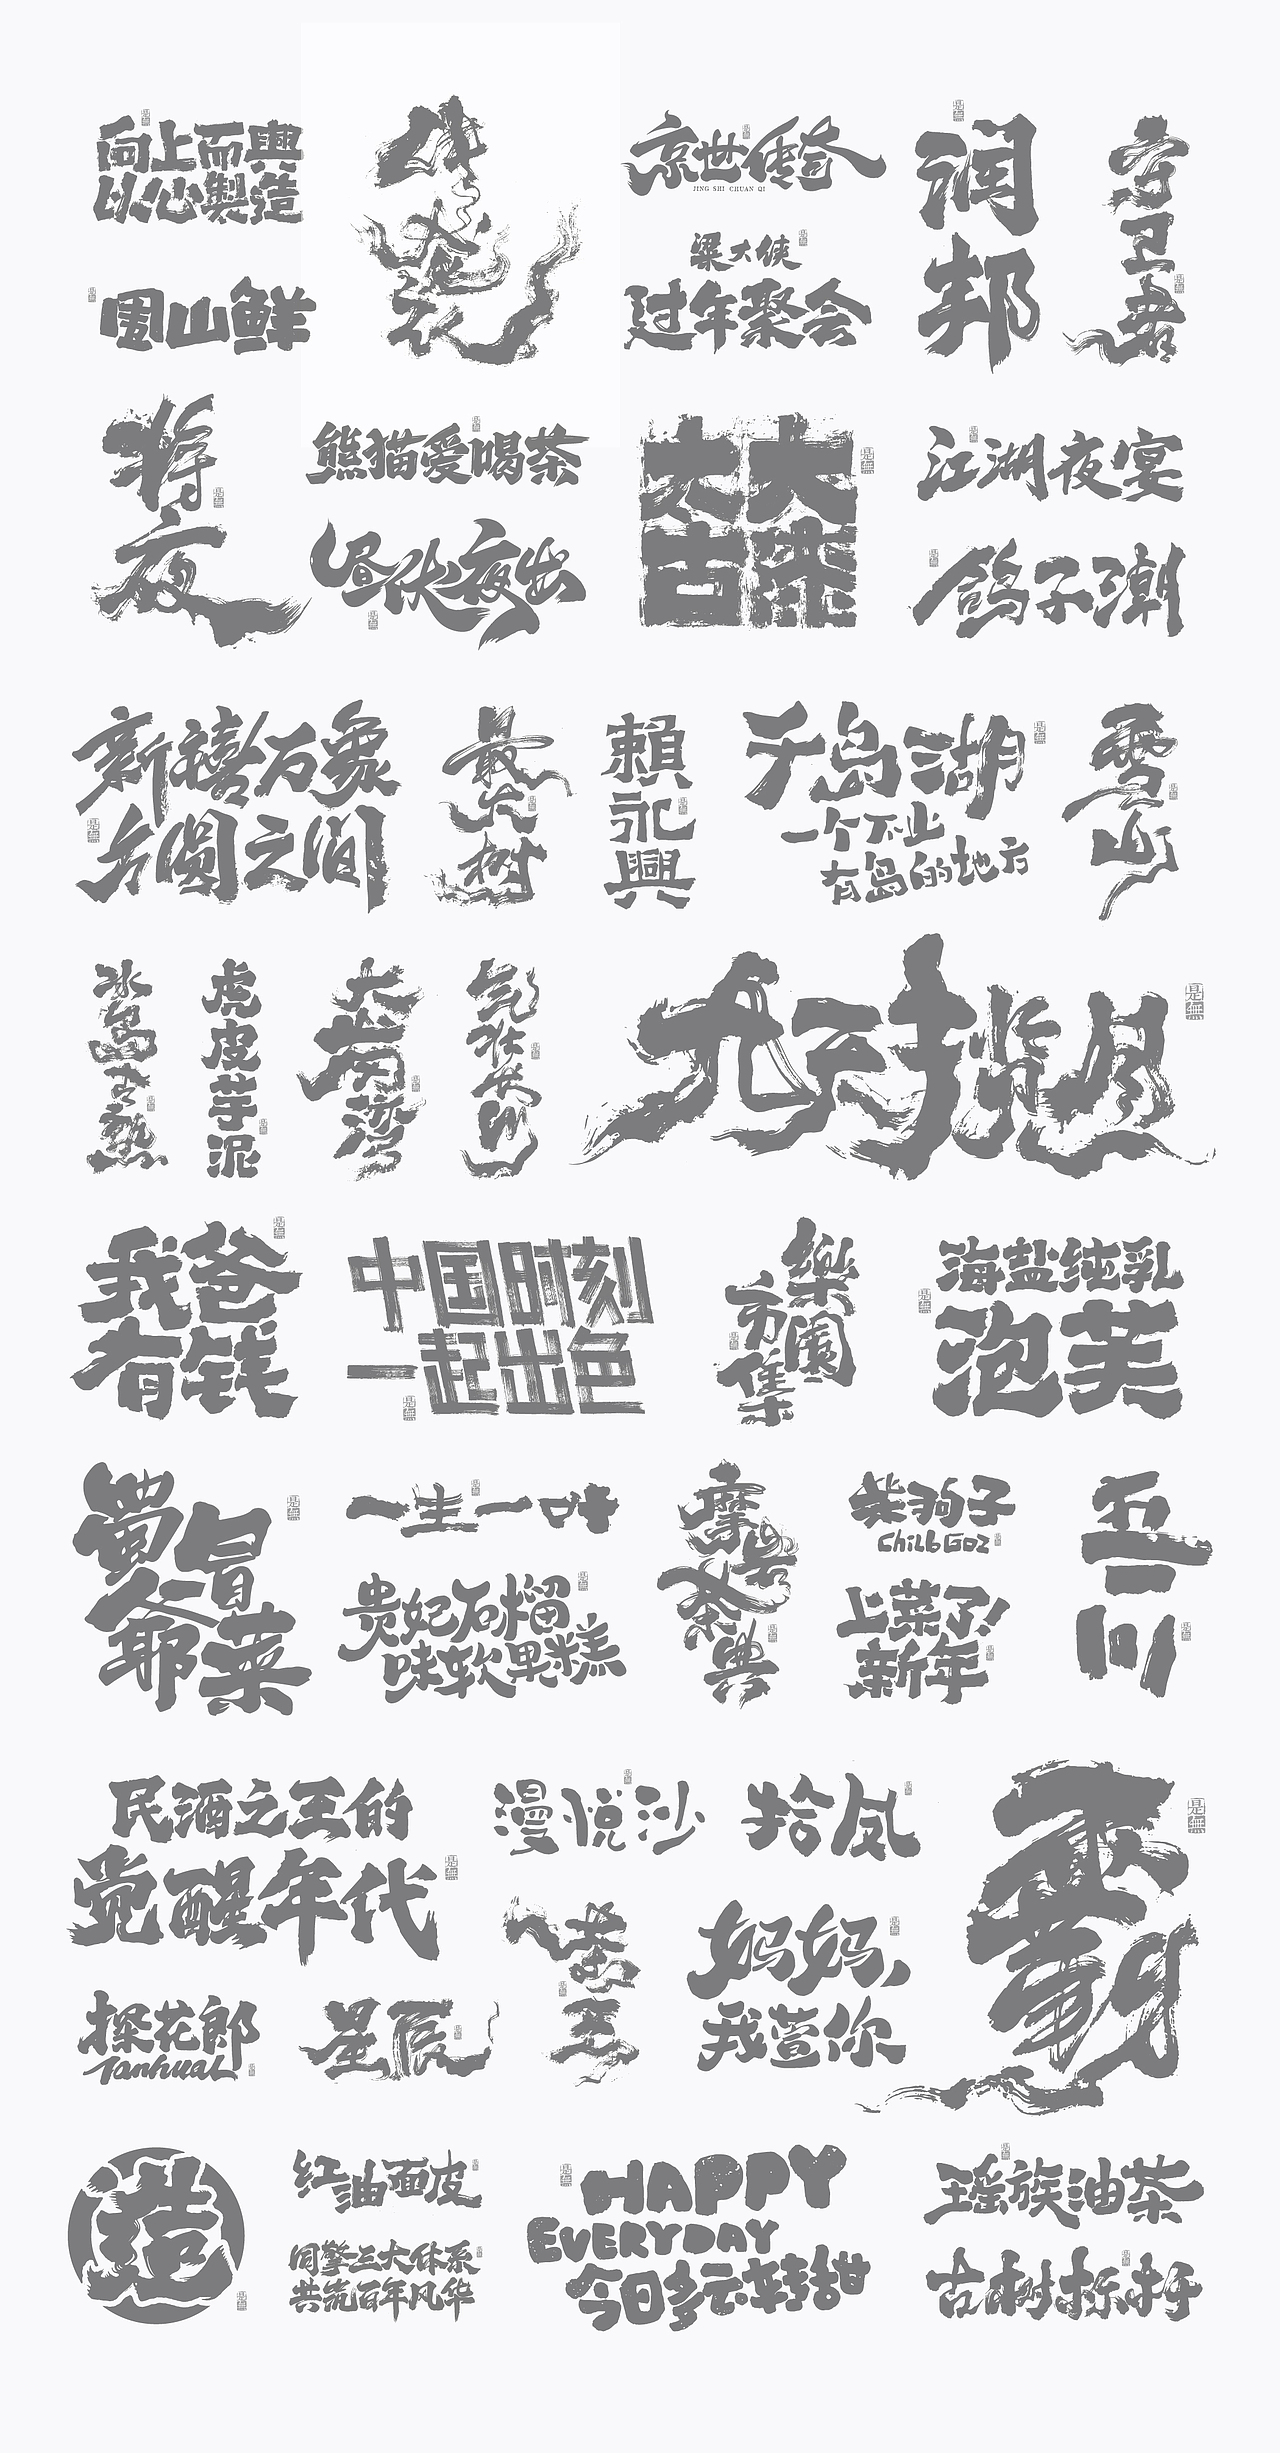 向上而興
以心製造
京世传奇
JING SHI CHUAN QI
润邦
守卫者
梁大侠
过年聚会
围山鲜
将夜
熊猫爱喝茶
江湖夜宴
昼伏夜出
鸽子潮
新禧万象
方圆之间
最大树
賴永興
千岛湖
一个不止
有岛的地方
雪山
冰岛古熱
虎皮芋泥
大南湾
气壮山
九天揽月
我爸
有钱
中国时刻
一起出色
樂園
市集
海盐纯乳
泡芙
蜀爷冒菜
一生一叶
贵妃石榴
味软果糕
摩岩茶典
柴狗子
Chilb Goz
上菜了!
新年
五一川
民酒之王的
觉醒年代
漫悦沙
拾凤
霸
茶王
妈妈,
我萱你
探花郎
TanhuaL
星辰
造
红油面皮
同擎三大体系
共流百年风华
HAPPY
EVERYDAY
今日多云转甜
瑶族油茶
古树拆拆